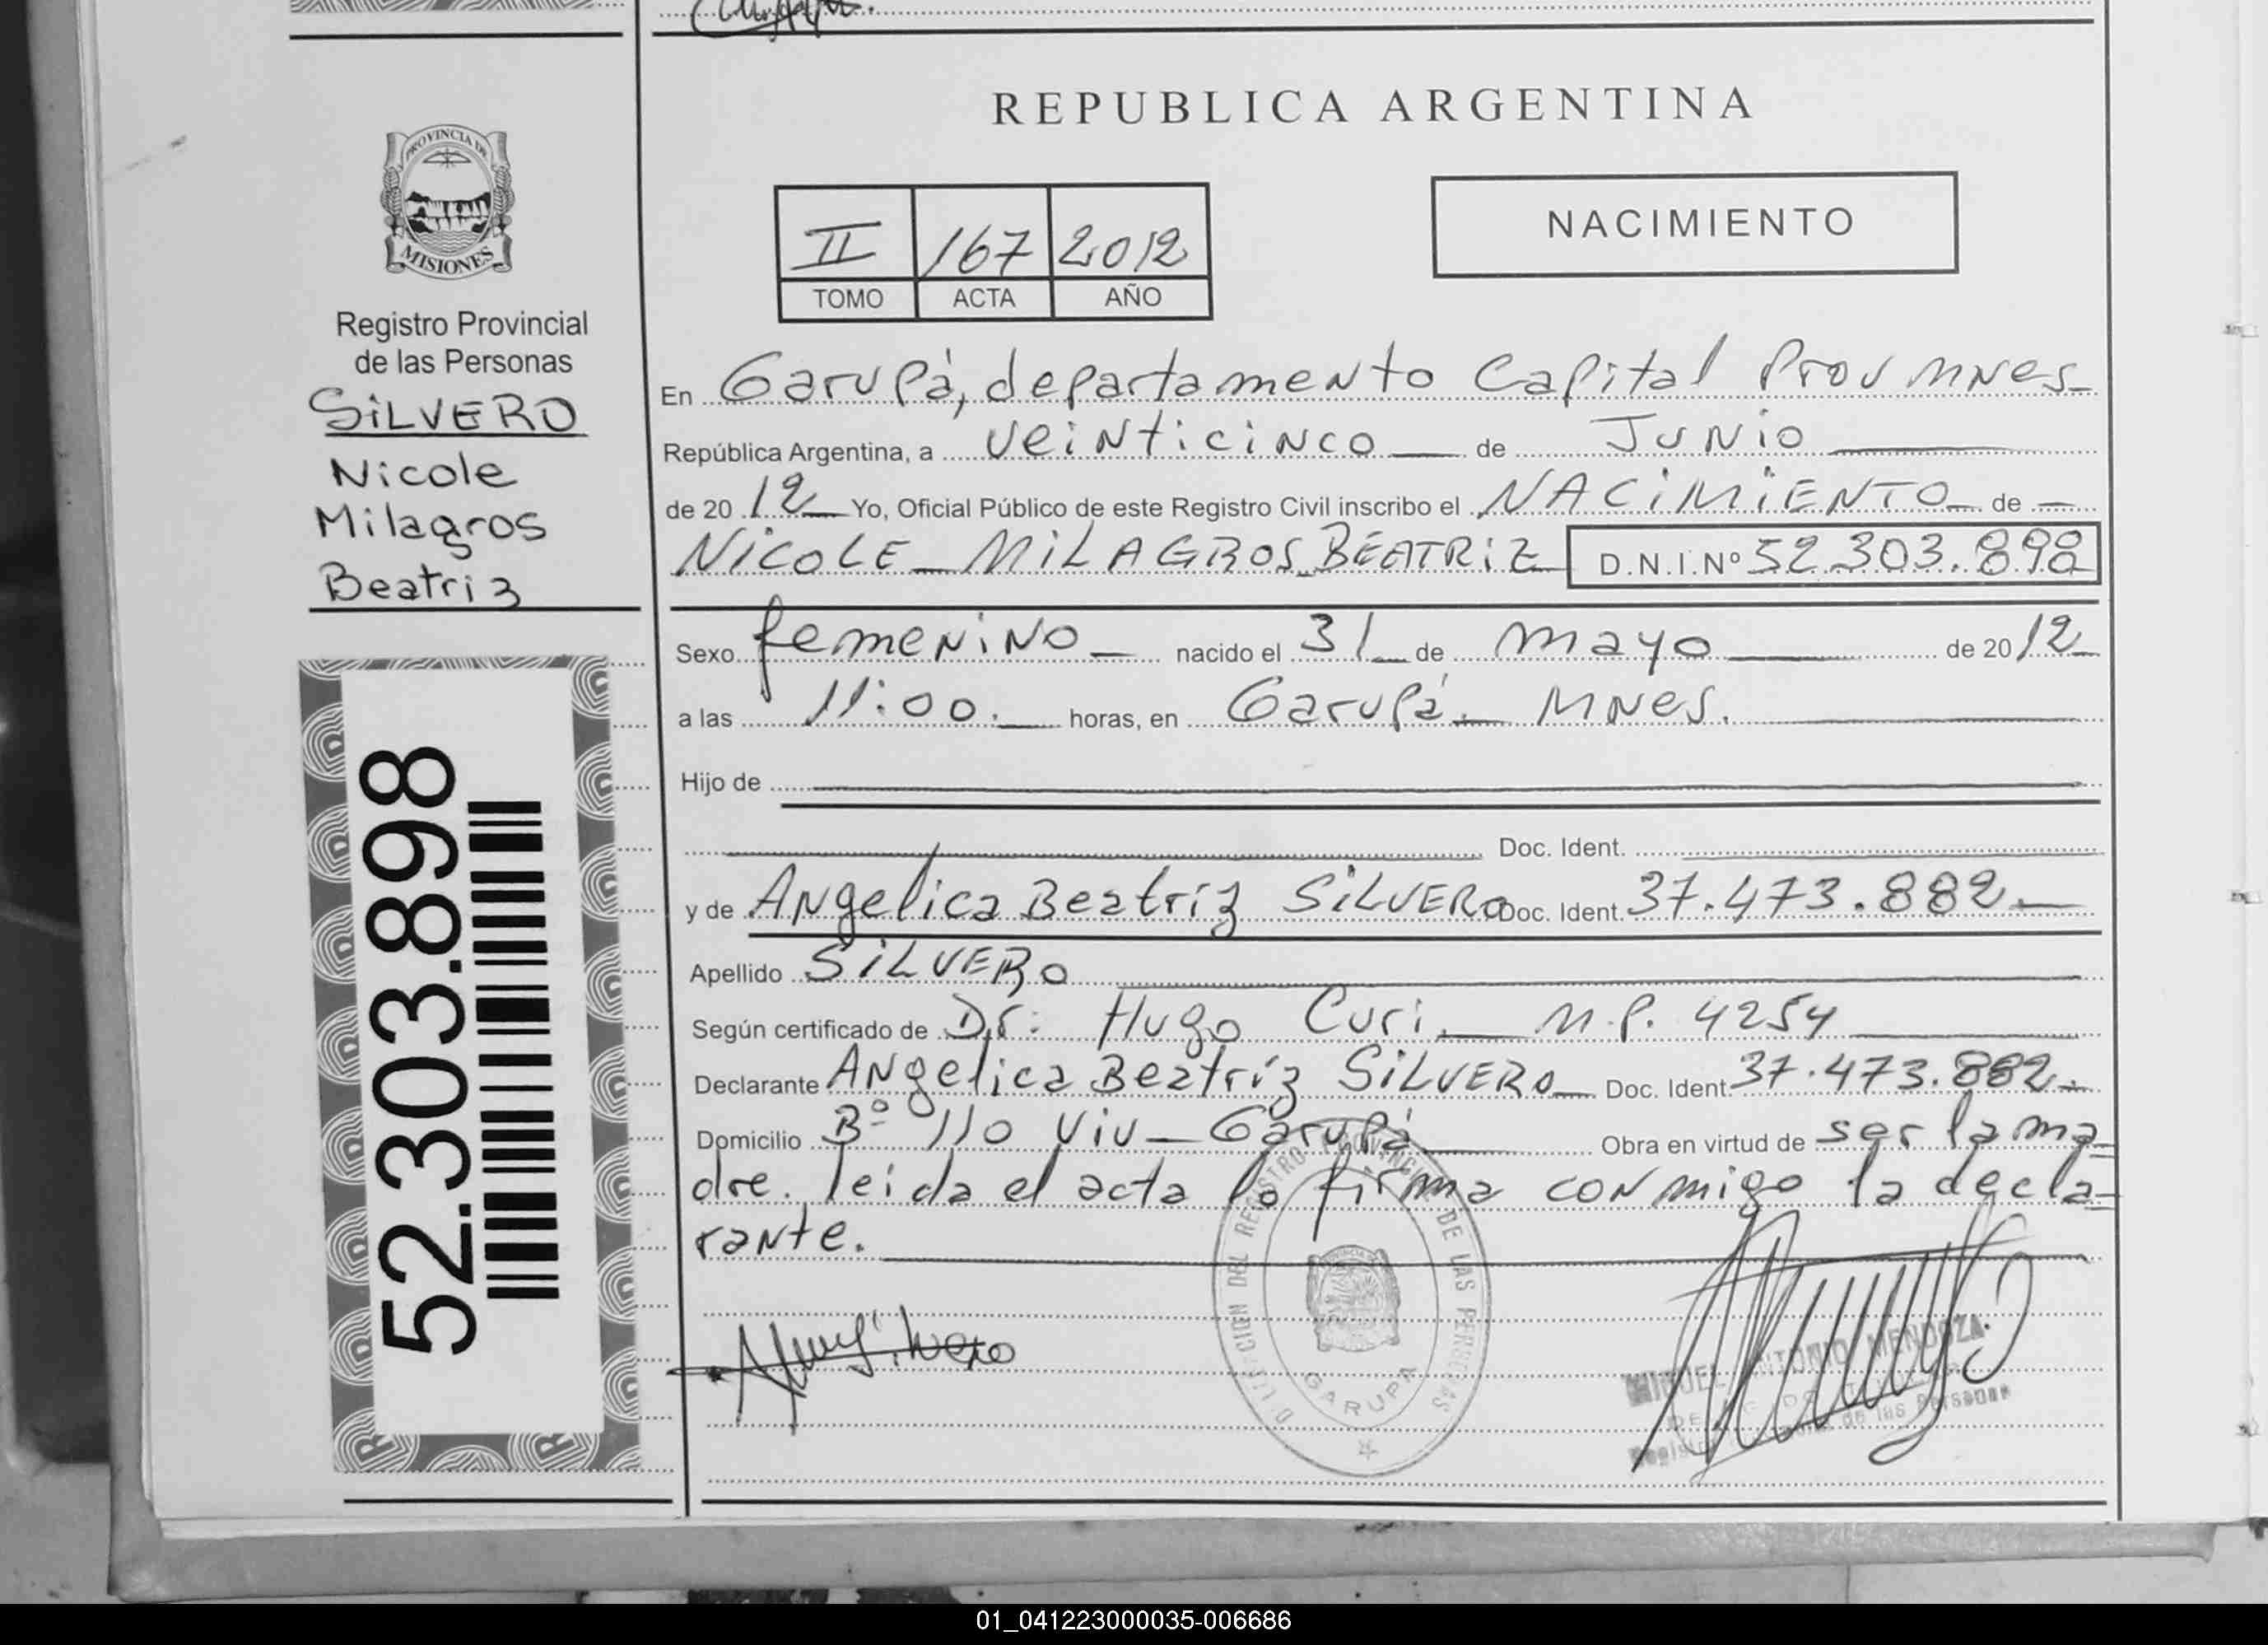 REPUBLICA ARGENTINA
PROVINCIA DE
MISIONES
Registro Provincial
de las Personas
SILVERO
Nicole
Milagros
Beatriz
52.303.898
II 167 2012
TOMO ACTA AÑO
NACIMIENTO
En Garupá, departamento Capital Prov Mnes
República Argentina, a veinticinco de Junio
de 2012 Yo, Oficial Público de este Registro Civil inscribo el NACIMIENTO de
NICOLE MILAGROS BEATRIZ D.N.I.Nº 52.303.898
Sexo femenino nacido el 31 de mayo de 2012
a las 11:00. horas, en Garupá. Mnes.
Hijo de
Doc. Ident.
y de Angelica Beatríz SILVERO Doc. Ident. 37.473.882
Apellido SILVERO
Según certificado de Dr: Hugo Curi M.P. 4254
Declarante Angelica Beatríz SILVERO Doc. Ident. 37.473.882.
Domicilio Bº 110 Viv Garupá Obra en virtud de ser la ma
dre. leida el acta la firma conmigo la decla
rante.
DIRECCION DEL REGISTRO PROVINCIAL DE LAS PERSONAS
GARUPA
MIGUEL ANTONIO MENDOZA
de las Personas
01_041223000035-006686